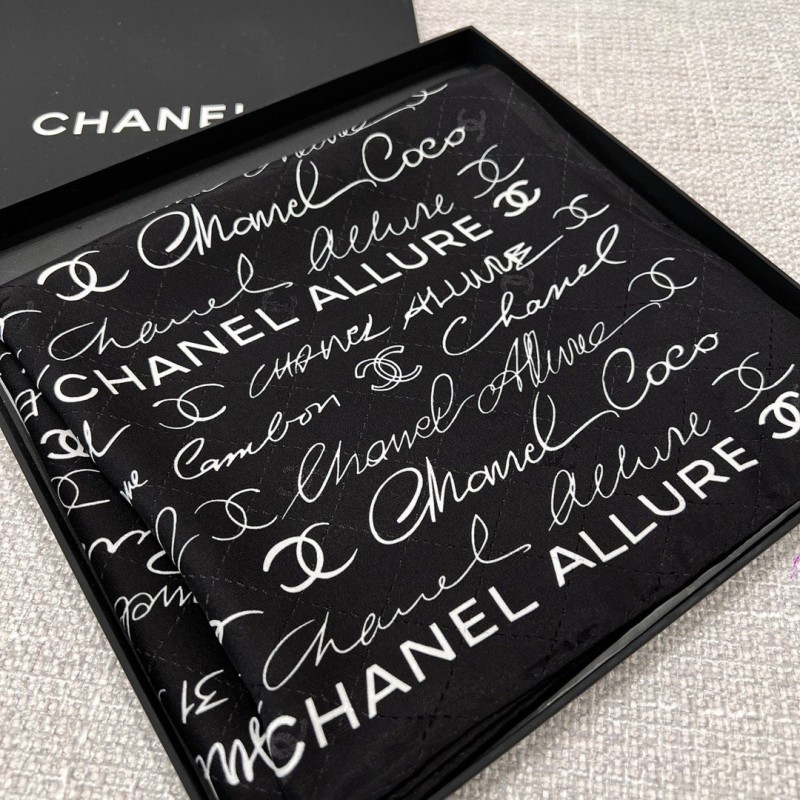 CHANEL
Chanel Coco
Chanel Allure
CHANEL ALLURE
CHANEL ALLURE
Cambon Chanel
Chanel Allure
Chanel Coco
Chanel Allure
CHANEL ALLURE
31